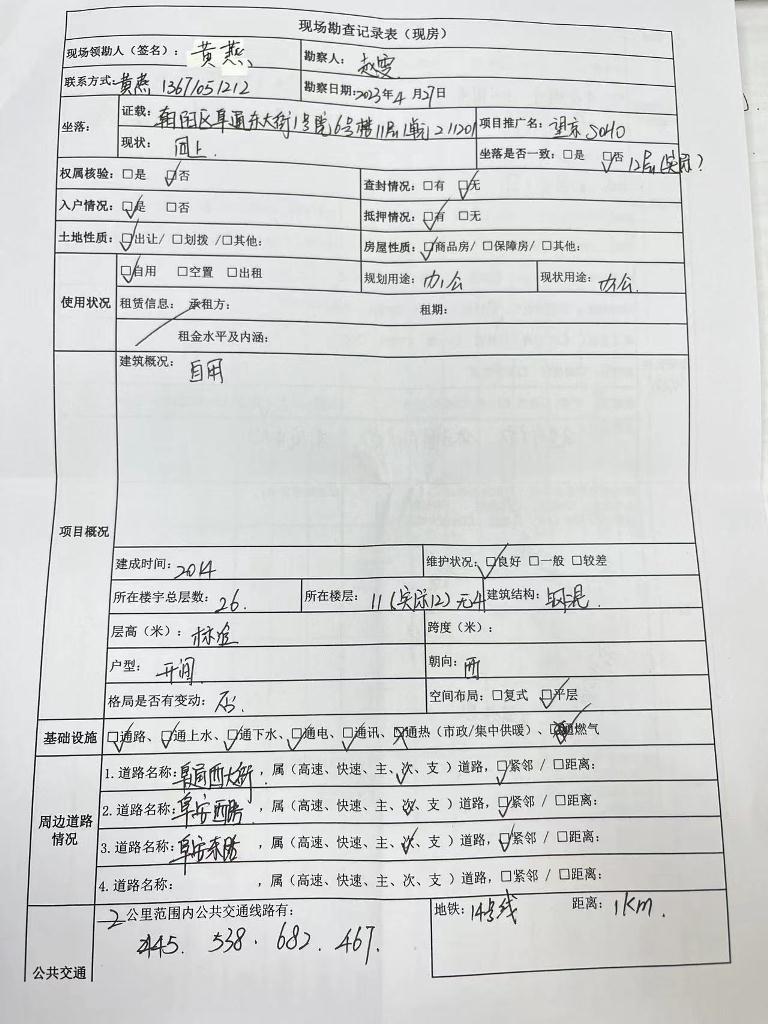 现场勘查记录表（现房）
现场领勘人（签名）： 黄燕 勘察人： 赵雯
联系方式: 黄燕 13671051212 勘察日期: 2023年4月27日
坐落： 证载： 朝阳区阜通东大街1号院6号楼11层1单元211201 项目推广名： 望京SOHO
现状： 同上. 坐落是否一致：□是 ☑否 12层(实际?)
权属核验：□是 ☑否 查封情况：□有 ☑无
入户情况：☑是 □否 抵押情况：☑有 □无
土地性质：☑出让/ □划拨 /□其他： 房屋性质：☑商品房/ □保障房/ □其他：
使用状况 ☑自用 □空置 □出租 规划用途： 办公 现状用途： 办公.
租赁信息： 承租方： 租期：
租金水平及内涵：
项目概况 建筑概况： 自用
建成时间： 2014 维护状况：☑良好 □一般 □较差
所在楼宇总层数： 26. 所在楼层： 11(实际12)无4 建筑结构： 钢混.
层高（米）： 标准 跨度（米）：
户型： 开间 朝向： 西
格局是否有变动： 否. 空间布局：□复式 ☑平层
基础设施 ☑通路、☑通上水、☑通下水、☑通电、☑通讯、☑通热（市政/集中供暖）、燃气
周边道路情况 1. 道路名称： 阜通西大街，属（高速、快速、主、次、支）道路，☑紧邻 / □距离：
2. 道路名称： 阜安西路，属（高速、快速、主、次、支）道路，☑紧邻 / □距离：
3. 道路名称： 阜安东路，属（高速、快速、主、次、支）道路，☑紧邻 / □距离：
4. 道路名称： ，属（高速、快速、主、次、支）道路，□紧邻 / □距离：
公共交通 2公里范围内公共交通线路有： 地铁： 14号线 距离： 1km.
445. 538. 682. 467.